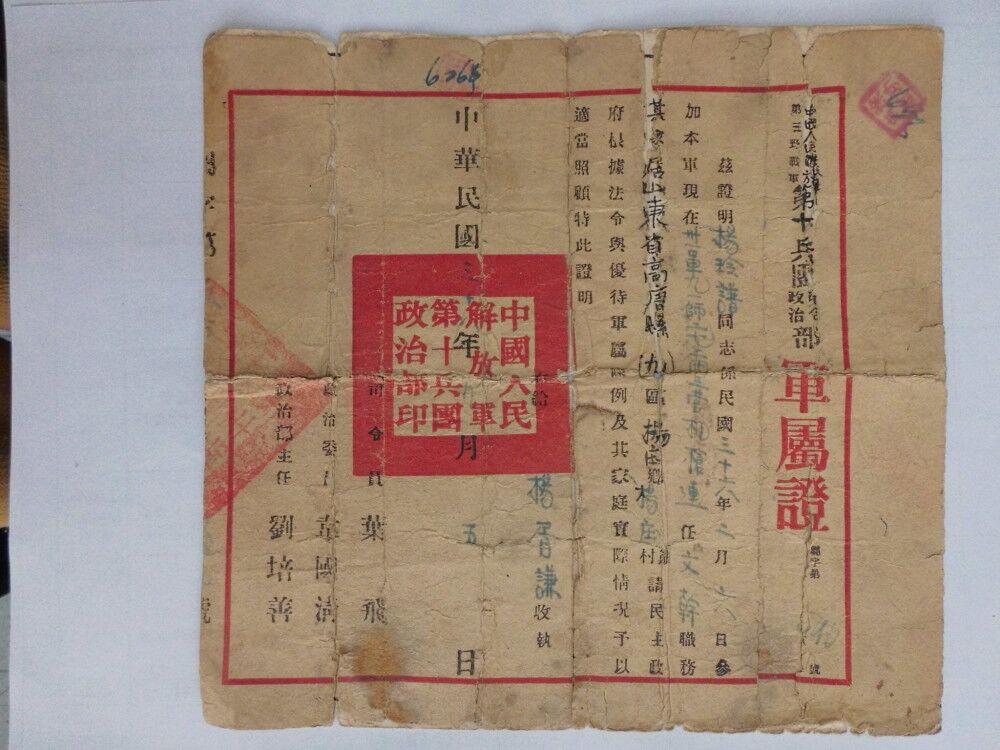 中國人民解放軍
第三野戰軍
第十兵團
政治部
軍屬證
縣字第
號
茲證明楊玲譜同志係民國三十八年二月十八日參
加本軍現在卅一軍九 師 营机槍連任文幹職務
其家居山東省高唐縣(九)區楊 鄉楊庄村 請民主政
府根據法令與優待軍屬條例及其家庭實際情况予以
適當照顧特此證明
右給
楊晋謙收執
司令員 葉飛
政治委員 韋國清
政治部主任 劉培善
中國人民
解放軍
第十兵團
政治部印
中華民國三 年 月 五 日
字第
號